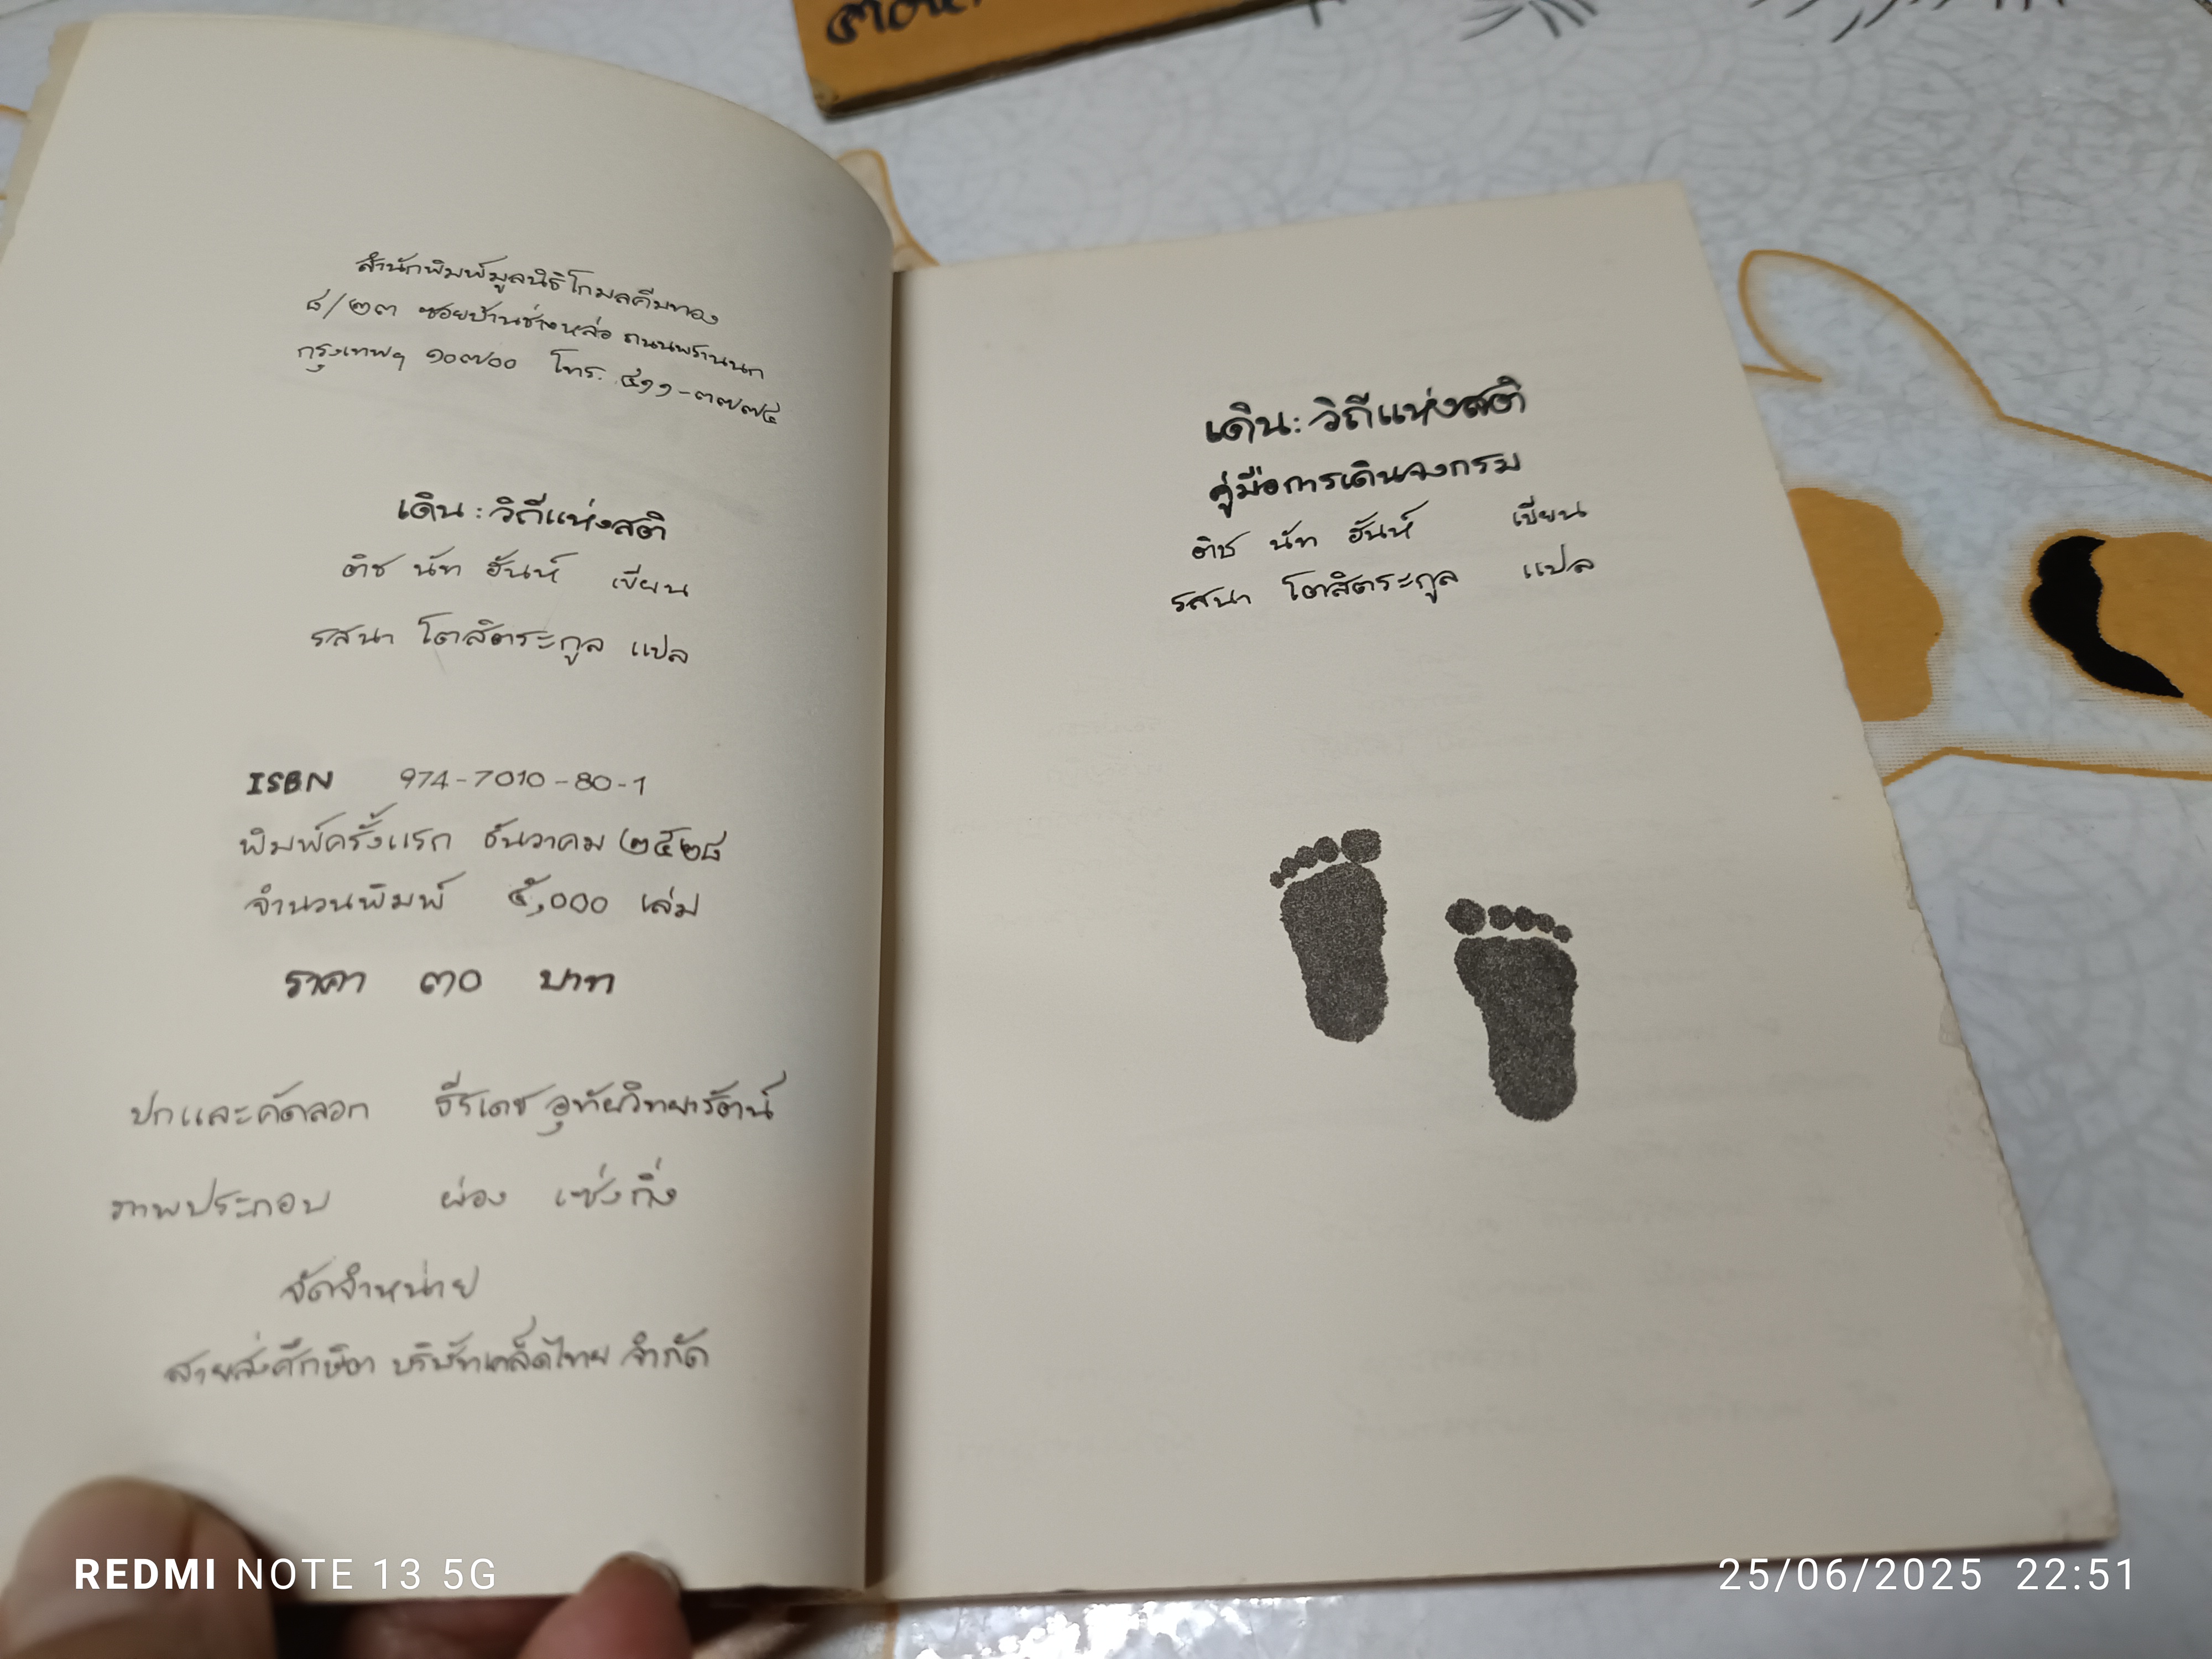 สำนักพิมพ์มูลนิธิโกมลคีมทอง
๘/๒๓ ซอยบ้านช่างหล่อ ถนนพรานนก
กรุงเทพฯ ๑๐๗๐๐ โทร. ๔๑๑-๓๗๗๔
เดิน : วิถีแห่งสติ
ติช นัท ฮันห์ เขียน
รสนา โตสิตระกูล แปล
ISBN 974-7010-80-1
พิมพ์ครั้งแรก ธันวาคม ๒๕๒๘
จำนวนพิมพ์ ๕,๐๐๐ เล่ม
ราคา ๓๐ บาท
ปกและคัดลอก ธีรเดช อุทัยวิทยารัตน์
ภาพประกอบ ผ่อง เซ่งกิ่ง
จัดจำหน่าย
สายส่งศึกษิต บริษัทเคล็ดไทย จำกัด
เดิน : วิถีแห่งสติ
คู่มือการเดินจงกรม
ติช นัท ฮันห์ เขียน
รสนา โตสิตระกูล แปล
REDMI NOTE 13 5G
25/06/2025 22:51